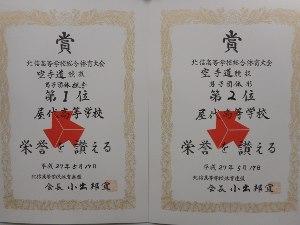 賞
北信高等学校総合体育大会
空手道競技
男子団体組手
第1位
屋代高等学校
栄誉を讃える
平成27年5月17日
北信高等学校体育連盟
会長 小出邦宜
賞
北信高等学校総合体育大会
空手道競技
男子団体形
第2位
屋代高等学校
栄誉を讃える
平成27年5月17日
北信高等学校体育連盟
会長 小出邦宜